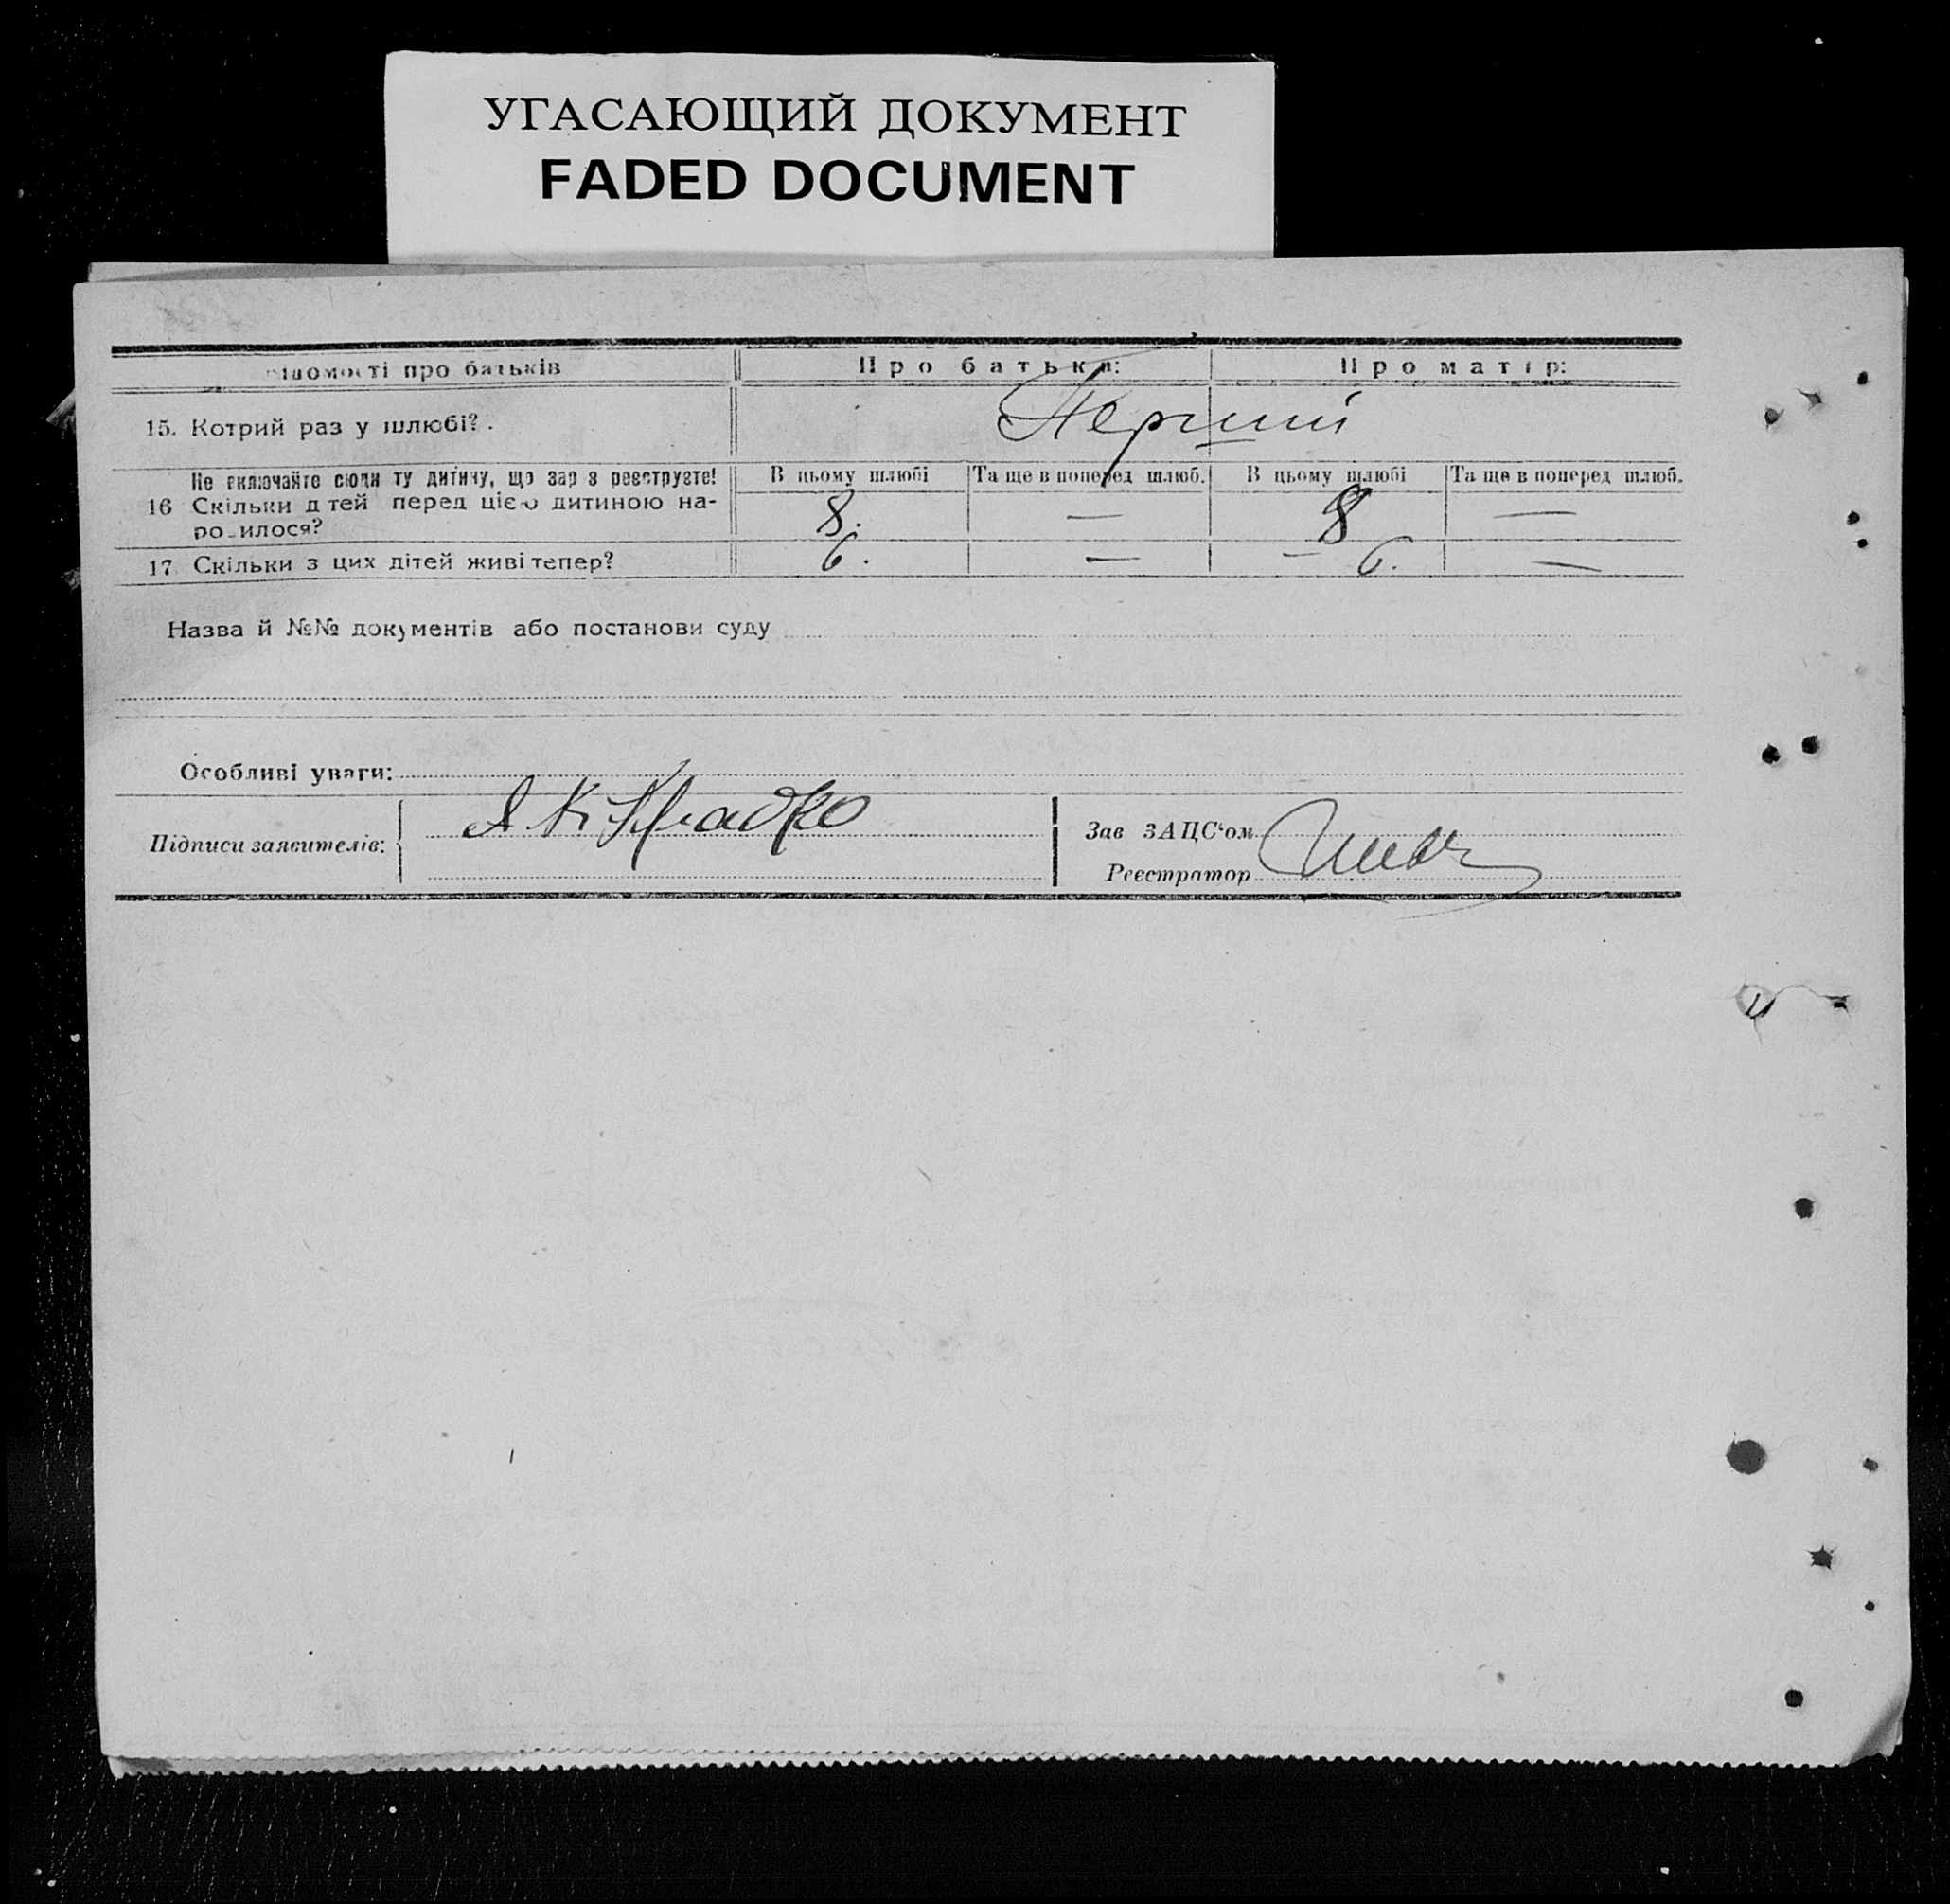 УГАСАЮЩИЙ ДОКУМЕНТ
FADED DOCUMENT
відомості про батьків Про батька: Про матір:
15. Котрий раз у шлюбі? . Перший
Не включайте сюди ту дитину, що зараз реєструєте! В цьому шлюбі Та ще в поперед шлюб. В цьому шлюбі Та ще в поперед шлюб.
16 Скільки дітей перед цією дитиною на- 8. — 8 —
родилося?
17. Скільки з цих дітей живі тепер? 6. — 6. —
Назва й №№ документів або постанови суду
Особливі уваги:
Підписи заявителів: Зав ЗАЦС'ом
Реєстратор